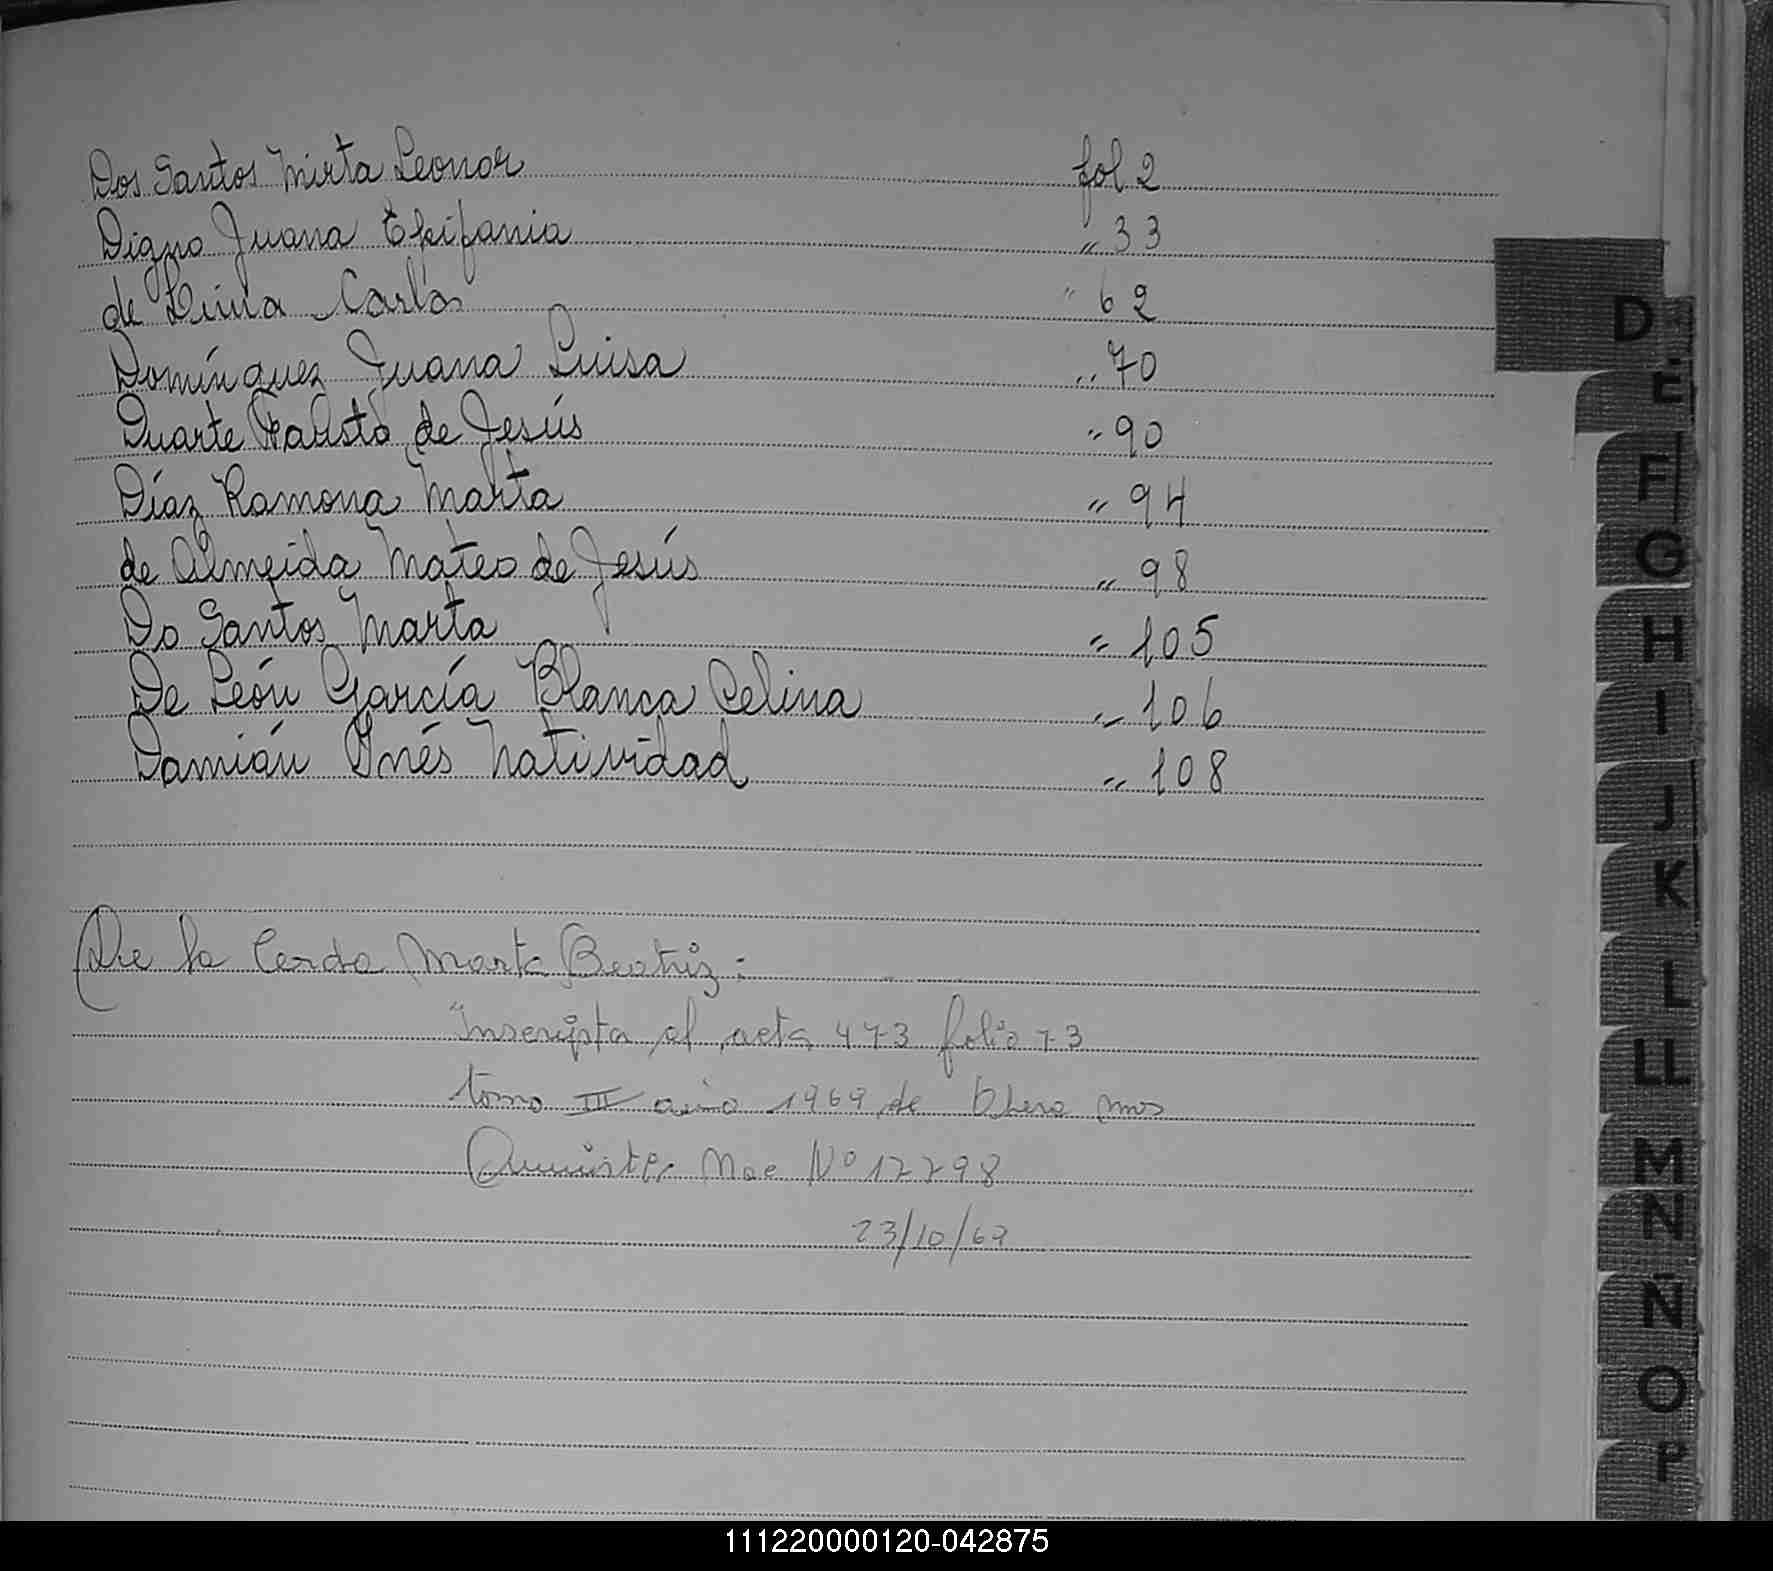 Dos Santos Mirta Leonor fol 2
Digno Juana Epifania " 33
de Lima Carlos " 62
Domínguez Juana Luisa " 70
Duarte Fausto de Jesús " 90
Díaz Ramona Marta " 94
de Almeida Mateo de Jesús " 98
Do Santos Marta " 105
De León García Blanca Celina " 106
Damián Inés Natividad " 108
De la Cerda Marta Beatriz:
Inscripta al acta 473 folio 73
tomo III año 1969 de
Nac Nº 17798
23/10/69
D
E
F
G
H
I
J
K
L
LL
M
N
Ñ
O
P
111220000120-042875